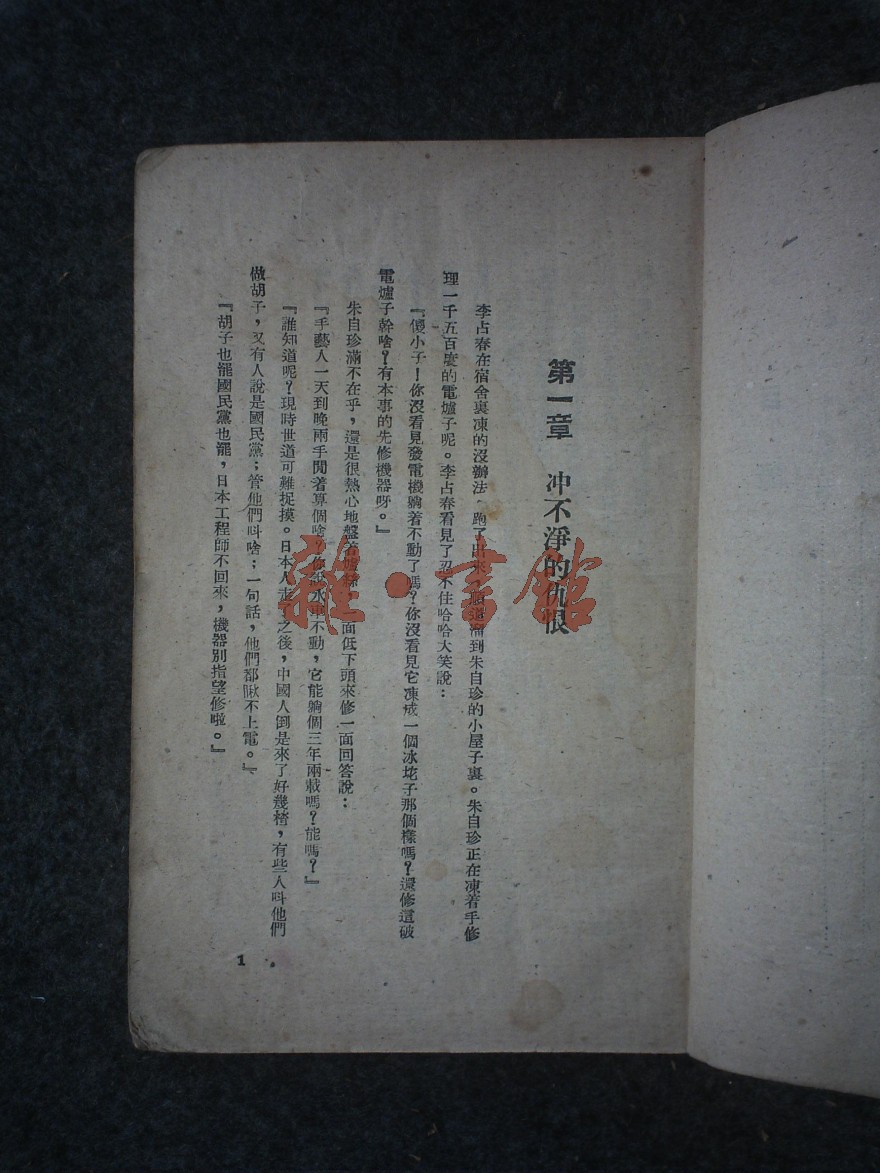 第一章 冲不淨的仇恨
李占春在宿舍裏凍的沒辦法,跑了出來,順道溜到朱自珍的小屋子裏。朱自珍正在凍着手修
理一千五百度的電爐子呢。李占春看見了忍不住哈哈大笑說:
『傻小子!你沒看見發電機躺着不動了嗎?你沒看見它凍成一個冰坨子那個樣嗎?還修這破
電爐子幹啥?有本事的先修機器呀。』
朱自珍滿不在乎,還是很熱心地盤着爐絲,一面低下頭來修一面回答說:
『手藝人一天到晚兩手閒着算個啥?你說水車不動,它能躺個三年兩載嗎?能嗎?』
『誰知道呢?現時世道可難捉摸。日本人走了之後,中國人倒是來了好幾楂,有些人叫他們
做胡子,又有人說是國民黨;管他們叫啥;一句話,他們都瞅不上電。』
『胡子也罷國民黨也罷,日本工程師不回來,機器別指望修啦。』
1
雜·書館